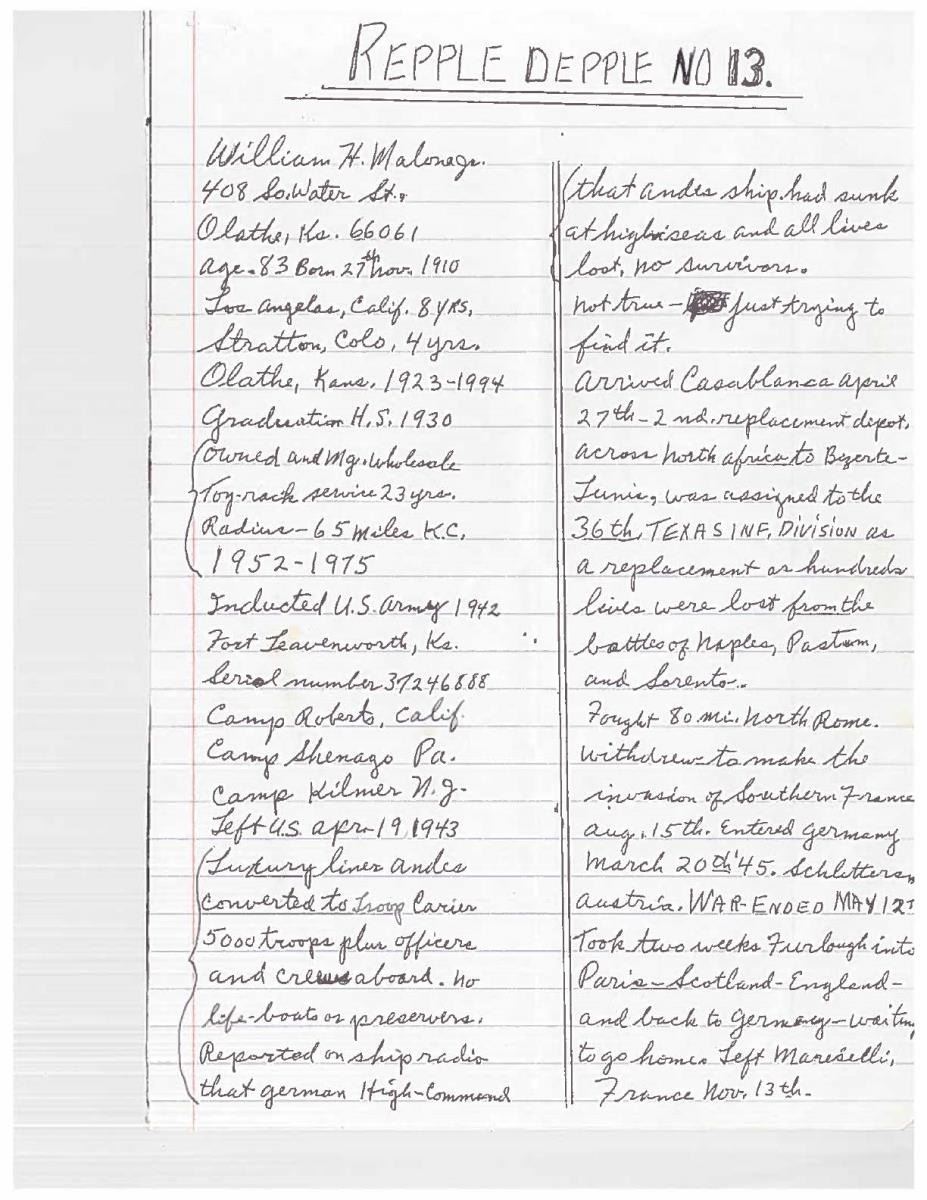 REPPLE DEPPLE NO 13.
William H. Malone
408 So. Water St.,
Olathe, Ks. 66061
age. 83 Born 27th Nov. 1910
Los Angelas, Calif. 8 YRS,
Stratton, Colo, 4 yrs.
Olathe, Kans. 1923-1994
Graduation H.S. 1930
Owned and Mg. Wholesale
Toy-rack service 23 yrs.
Radius - 65 miles K.C,
1952-1975
Inducted U.S. Army 1942
Fort Leavenworth, Ks.
Serial number 37246888
Camp Roberts, Calif.
Camp Shenago Pa.
Camp Kilmer N.J-
Left U.S. apr-19, 1943
Luxury liner Andes
converted to Troop Carier
5000 troops plus officers
and crews aboard. No
life-boats or preservers.
Reported on ship radio
that german High-Command
that andes ship had sunk
at high seas and all lives
lost, no survivors.
not true - just trying to
find it.
arrived Casablanca april
27th - 2nd. replacement depot,
across North africa to Bizerte-
Tunis, was assigned to the
36th, TEXAS INF, DIVISION as
a replacement as hundreds
lives were lost from the
battles of Naples, Pastum,
and Sorento.
Fought 80 mi. North Rome.
withdrew to make the
invasion of Southern France
aug, 15th. Entered germany
March 20th '45. Schlitters
austria. WAR-ENDED MAY 12
Took two weeks Furlough into
Paris - Scotland - England -
and back to Germany - waitin
to go home. Left Mareselli,
France Nov, 13th.